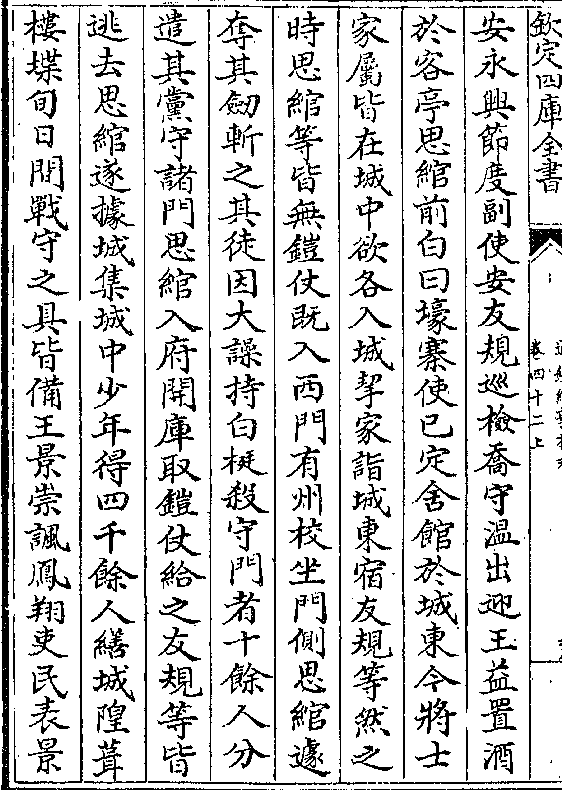 欽定四庫全書
卷四十二上
安永興節度副使安友規巡檢喬守溫出迎王益置酒
於客亭思綰前白曰壕寨使已定舍館於城東今將士
家屬皆在城中欲各入城挈家詣城東宿友規等然之
時思綰等皆無鎧仗既入西門有州校坐門側思綰遽
奪其劔斬之其徒因大譟持白梃殺守門者十餘人分
遣其黨守諸門思綰入府開庫取鎧仗給之友規等皆
逃去思綰遂據城集城中少年得四千餘人繕城隍葺
樓堞旬日間戰守之具皆備王景崇諷鳳翔吏民表景